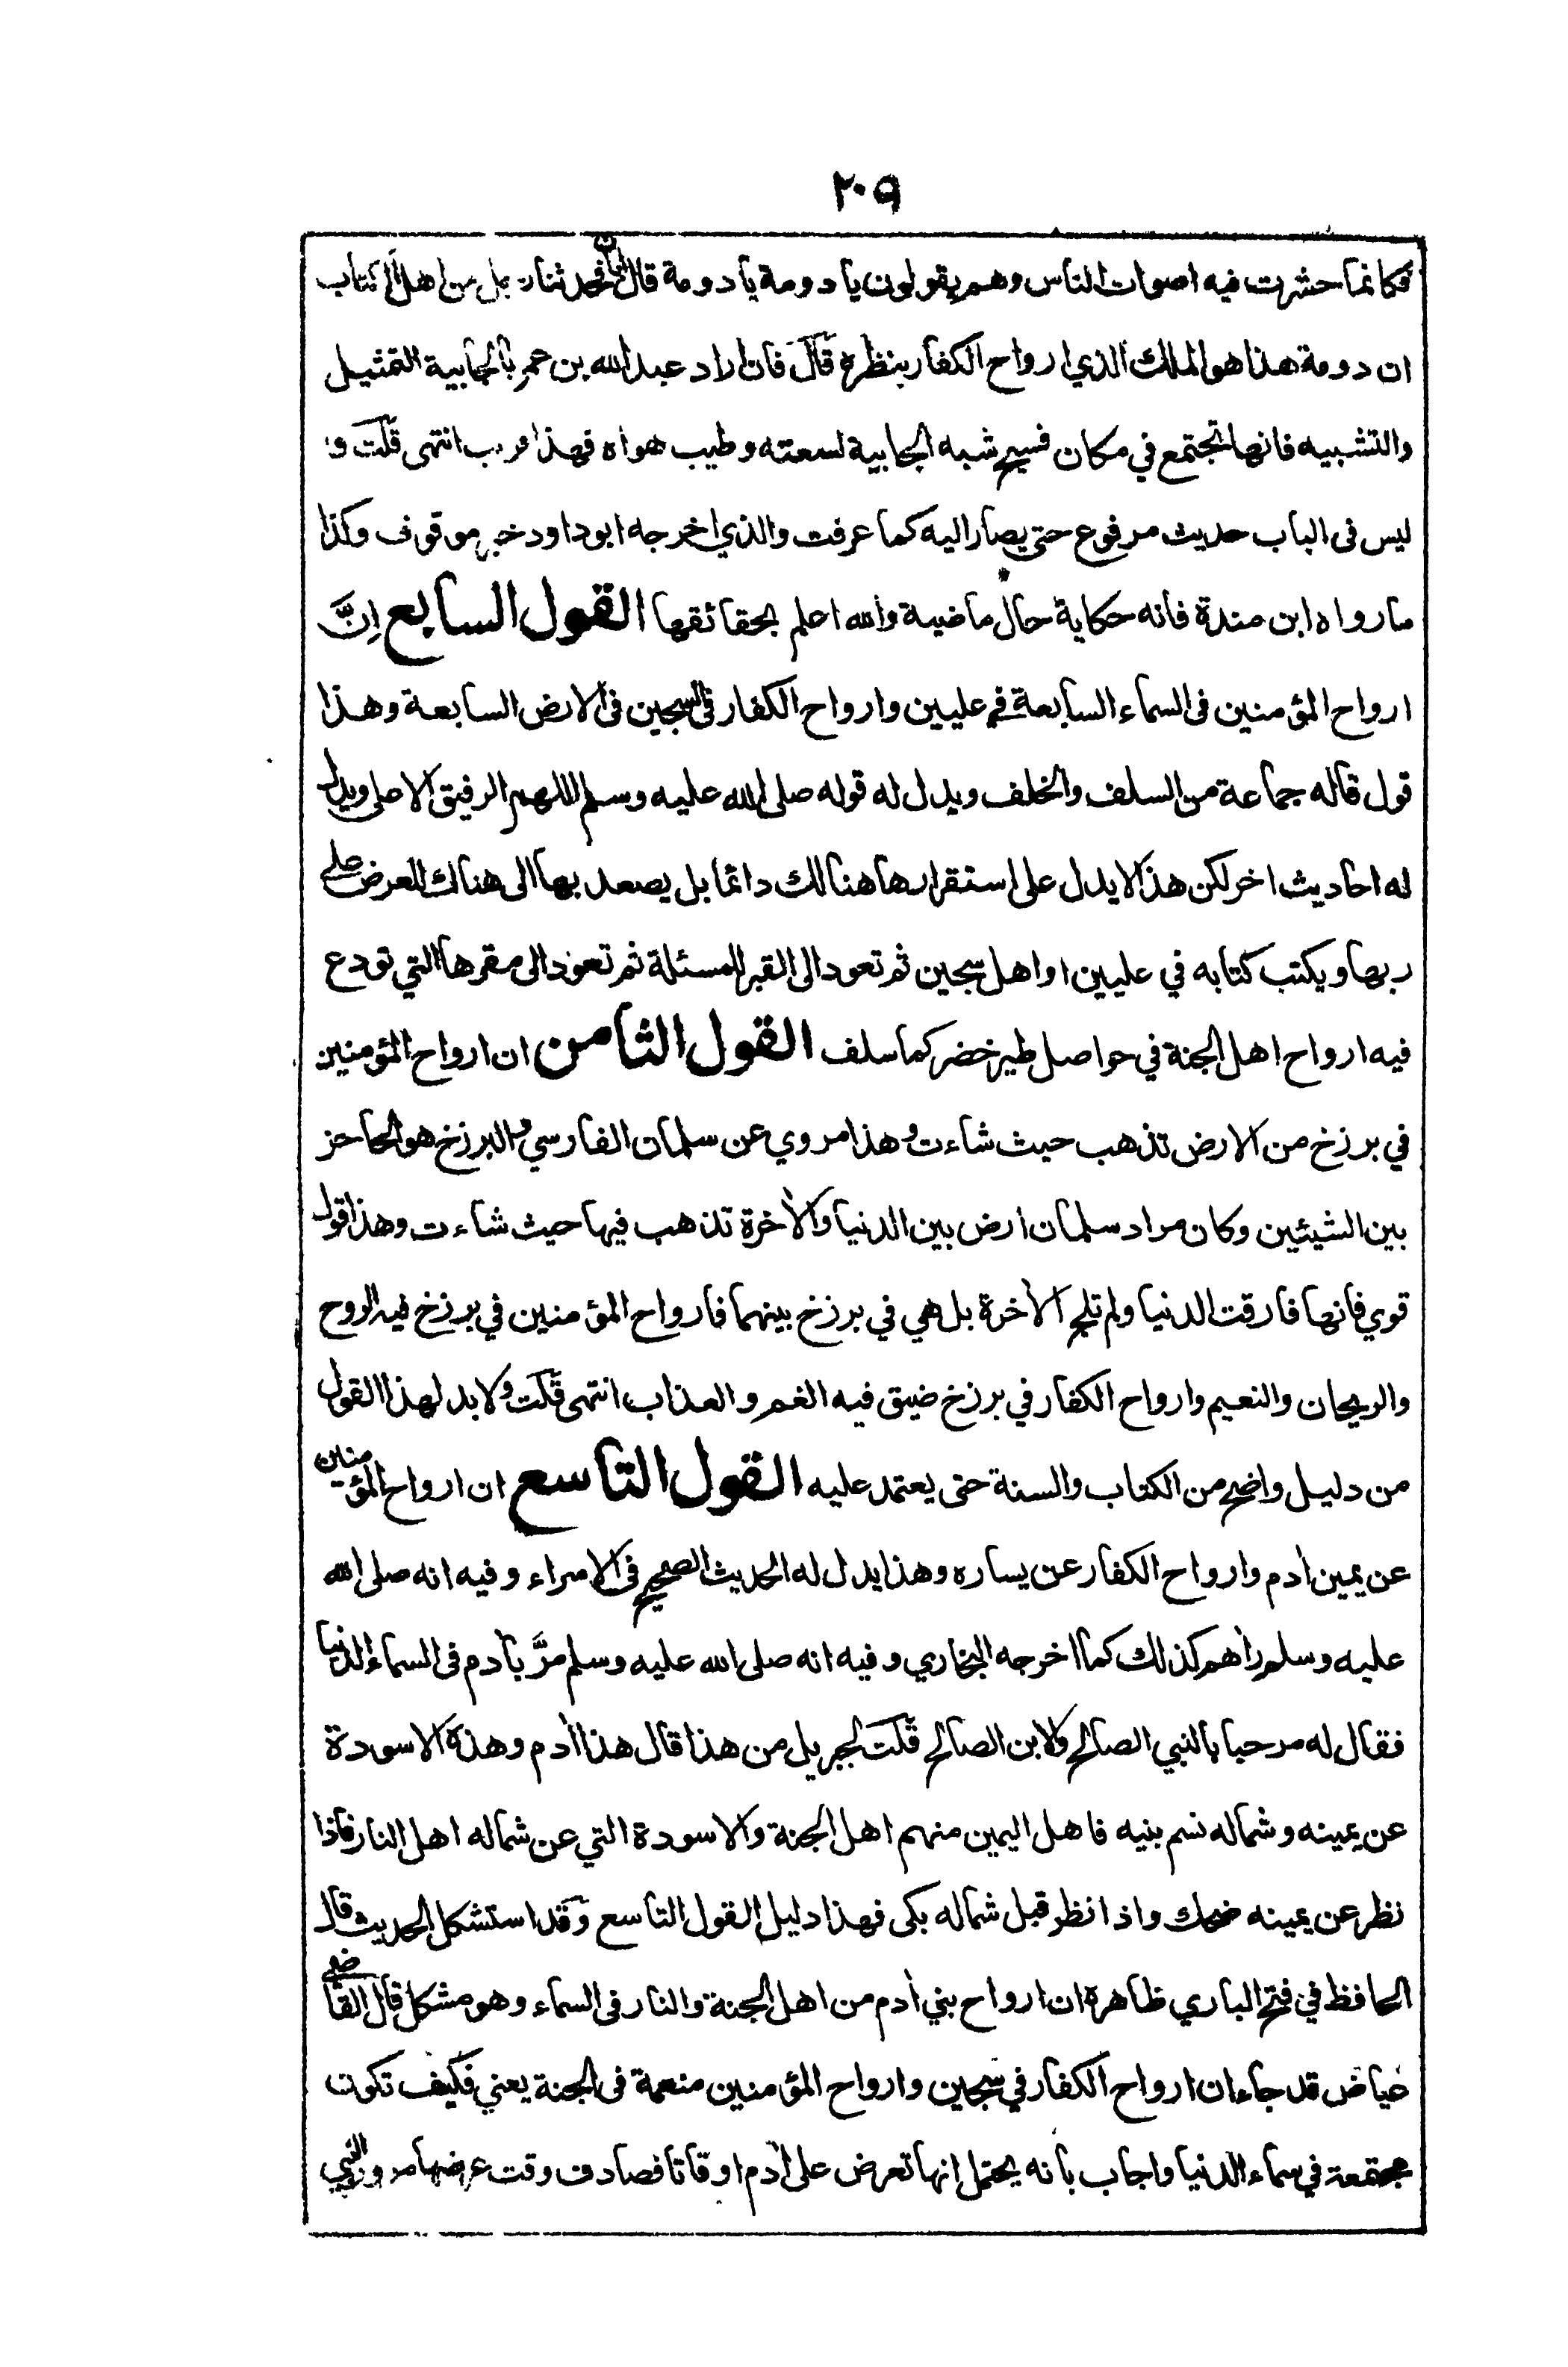 ٢٠٩
فكانما حشرت فيه اصوات الناس وهم يقولون يا دومة يا دومة قال ابان فحدثنا رجل من اهل الكتاب
ان دومة هذا هو الملك الذي ارواح الكفار بنظره قال فان اراد عبد الله بن عمر بالجابية التمثيل
والتشبيه فانها تجتمع في مكان فسيح شبه الجابية لسعته وطيب هواه فهذا قريب انتهى قلت و
ليس في الباب حديث مرفوع حتى يصار اليه كما عرفت والذي اخرجه ابو داود خبر موقوف وكذا
ما رواه ابن مندة فانه حكاية حال ماضية والله اعلم بحقائقها القول السابع اِنَّ
ارواح المؤمنين في السماء السابعة في عليين وارواح الكفار في السجين في الارض السابعة وهذا
قول قاله جماعة من السلف والخلف ويدل له قوله صلى الله عليه وسلم اللهم الرفيق الاعلى ويدل
له احاديث اخر لكن هذا لا يدل على استقرارها هنالك دائما بل يصعد بها الى هناك للعرض على
ربها ويكتب كتابه في عليين او اهل سجين ثم تعود الى القبر للمسئلة ثم تعود الى مقرها التي تودع
فيه ارواح اهل الجنة في حواصل طير خضر كما سلف القول الثامن ان ارواح المؤمنين
في برزخ من الارض تذهب حيث شاءت وهذا مروي عن سلمان الفارسي والبرزخ هو الحاجز
بين الشيئين وكان مراد سلمان ارض بين الدنيا والأخرة تذهب فيها حيث شاءت وهذا قول
قوي فانها فارقت الدنيا ولم تلج الأخرة بل هي في برزخ بينهما فارواح المؤمنين في برزخ فيه الروح
والريحان والنعيم وارواح الكفار في برزخ ضيق فيه الغم والعذاب انتهى قلت ولا بد لهذا القول
من دليل واضح من الكتاب والسنة حتى يعتمد عليه القول التاسع ان ارواح المؤمنين
عن يمين أدم وارواح الكفار عن يساره وهذا يدل له الحديث الصحيح في الاسراء وفيه انه صلى الله
عليه وسلم رأهم كذلك كما اخرجه البخاري وفيه انه صلى الله عليه وسلم مرَّ بأدم في السماء الدنيا
فقال له مرحبا بالنبي الصالح والابن الصالح قلت لجبريل من هذا قال هذا أدم وهذه الاسودة
عن يمينه وشماله نسم بنيه فاهل اليمين منهم اهل الجنة والاسودة التي عن شماله اهل النار فاذا
نظر عن يمينه ضحك واذا نظر قبل شماله بكى فهذا دليل القول التاسع وقد استشكل الحديث قال
الحافظ في فتح الباري ظاهره ان ارواح بني أدم من اهل الجنة والنار في السماء وهو مشكل قال القاضي
عياض قد جاء ان ارواح الكفار في سجين وارواح المؤمنين منعمة في الجنة يعني فكيف تكون
مجتمعة في سماء الدنيا واجاب بانه يحتمل انها تعرض على أدم اوقاتا فصادف وقت عرضها مرور النبي